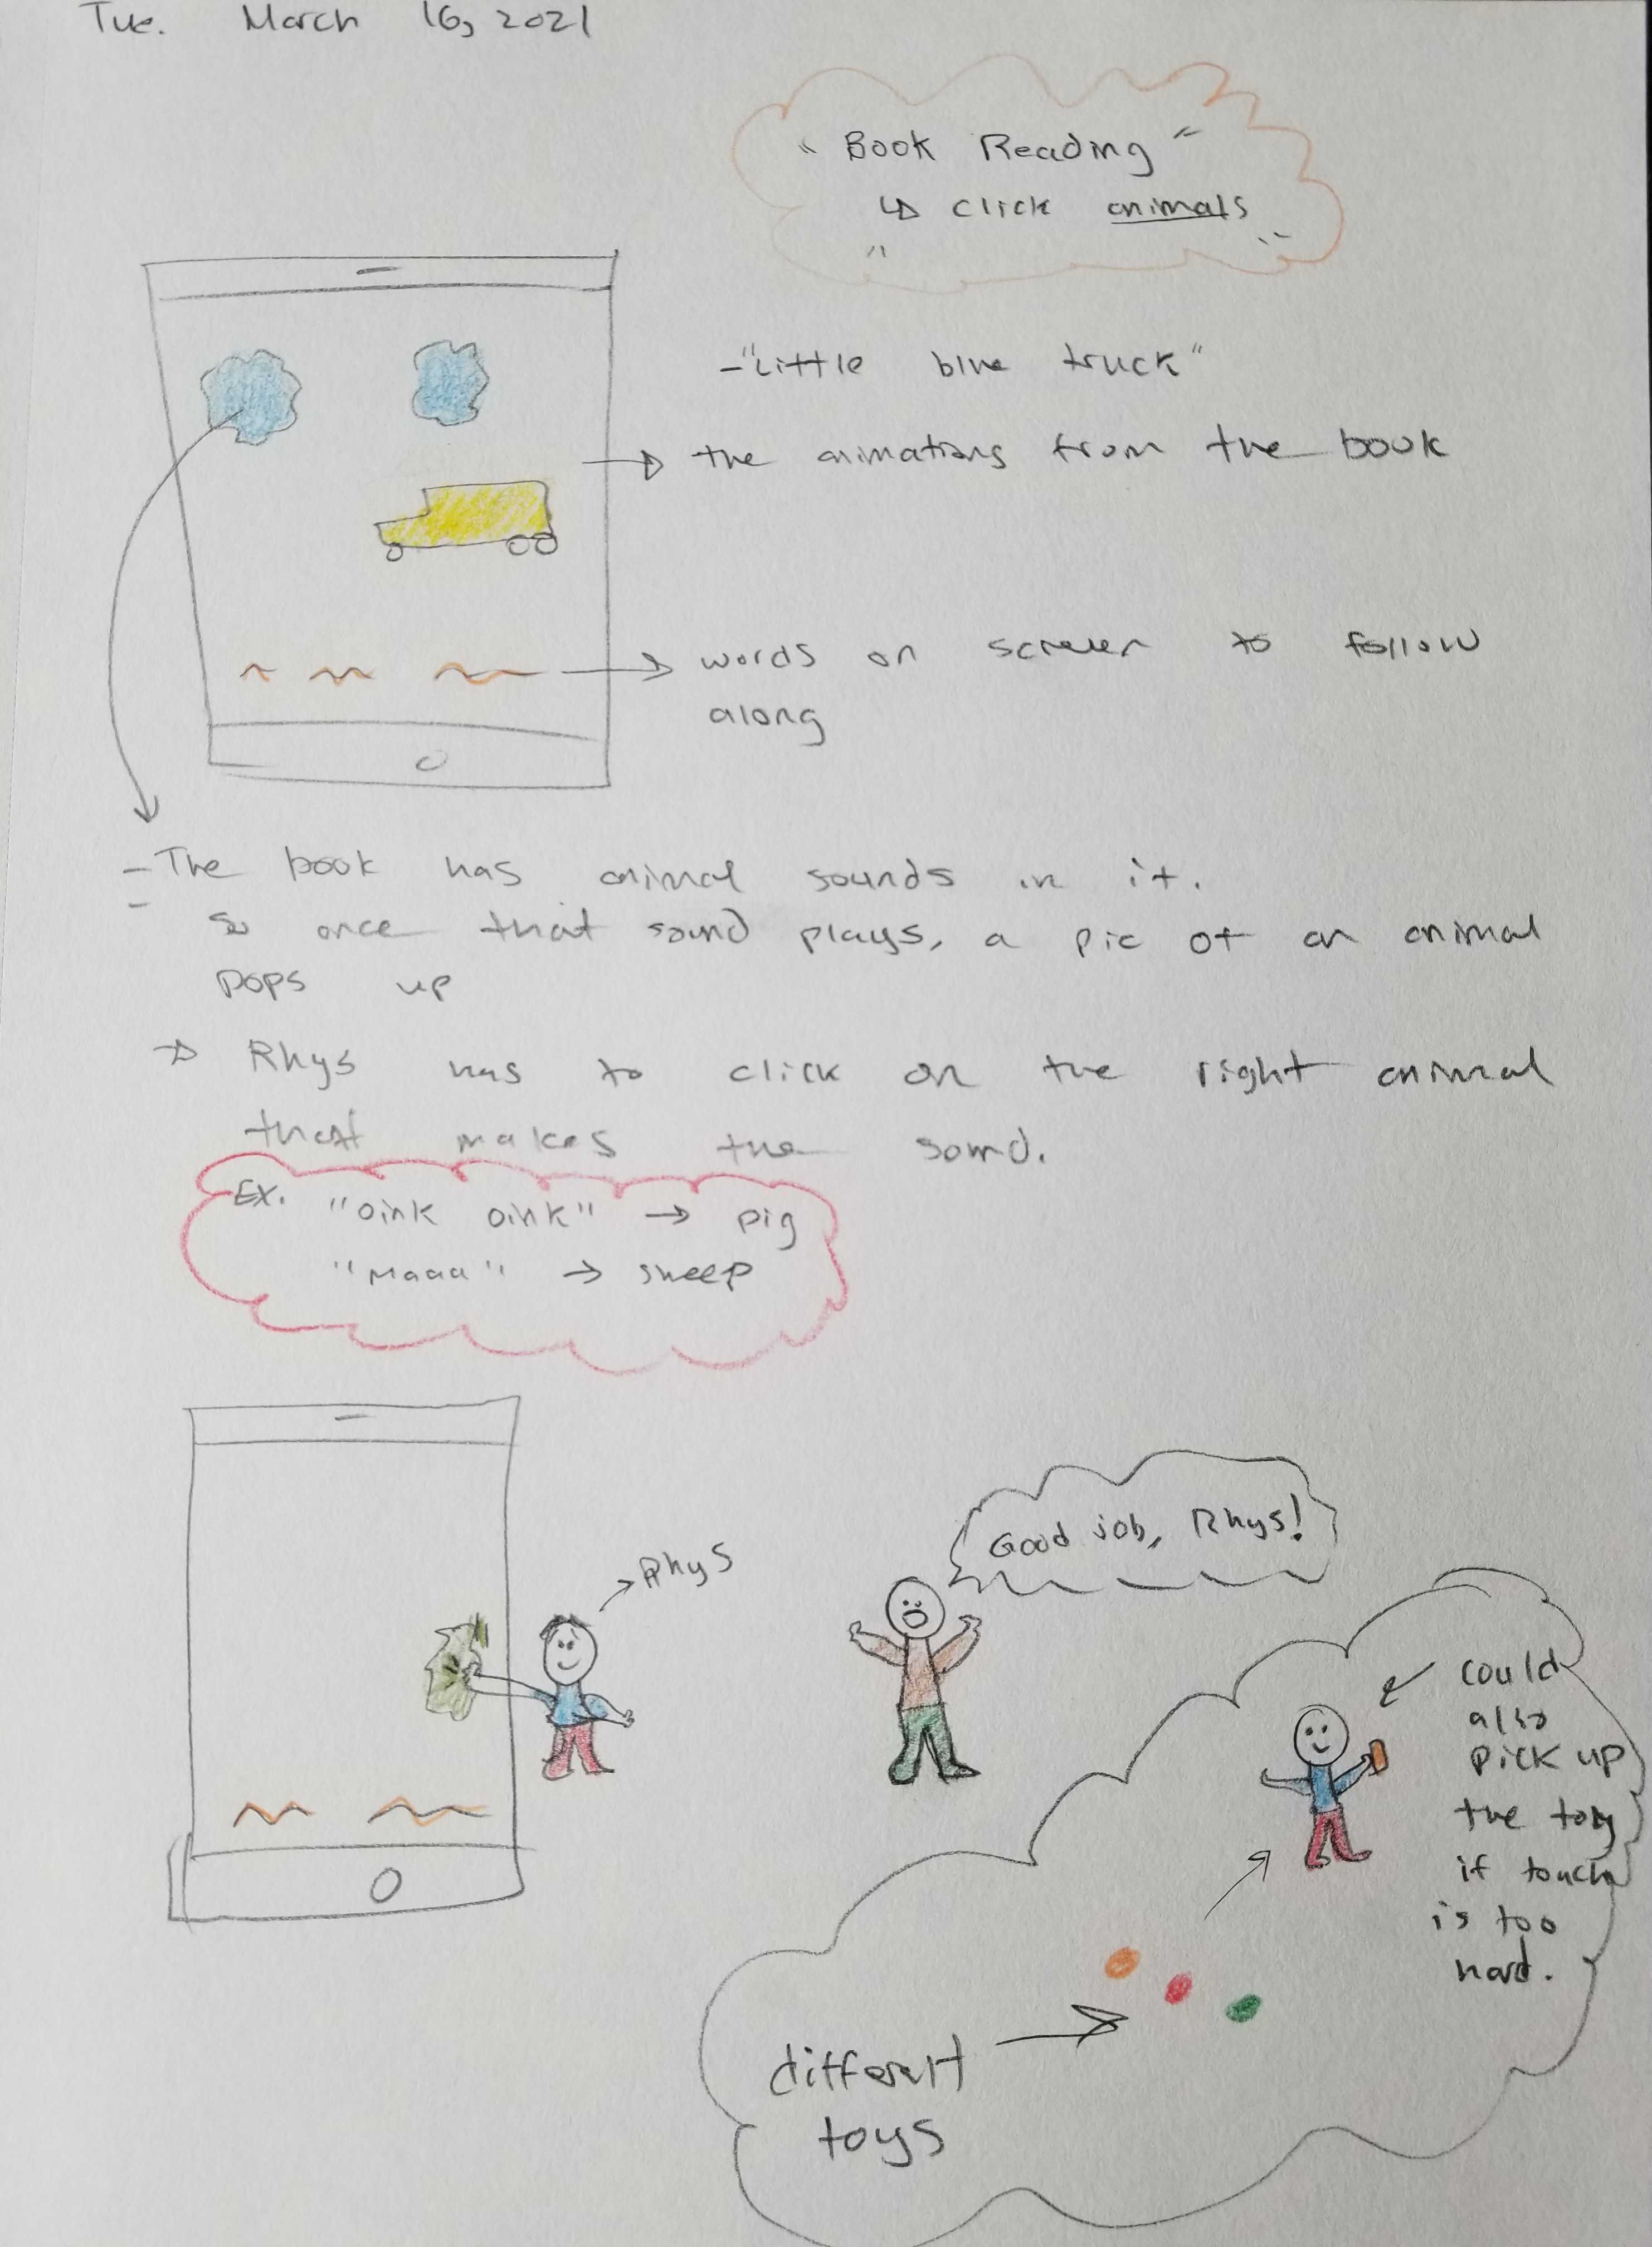 Tue. March 16, 2021
"Book Reading"
↳ click animals
" "
- "Little blue truck"
→ the animations from the book
→ words on screen to follow
along
- The book has animal sounds in it.
-
So once that sound plays, a pic of an animal
pops up
→ Rhys has to click on the right animal
that makes the sound.
Ex. "oink oink" → pig
"Maaa" → sheep
Good job, Rhys!
→ Rhys
could
also
pick up
the toy
if touch
is too
hard.
different
toys